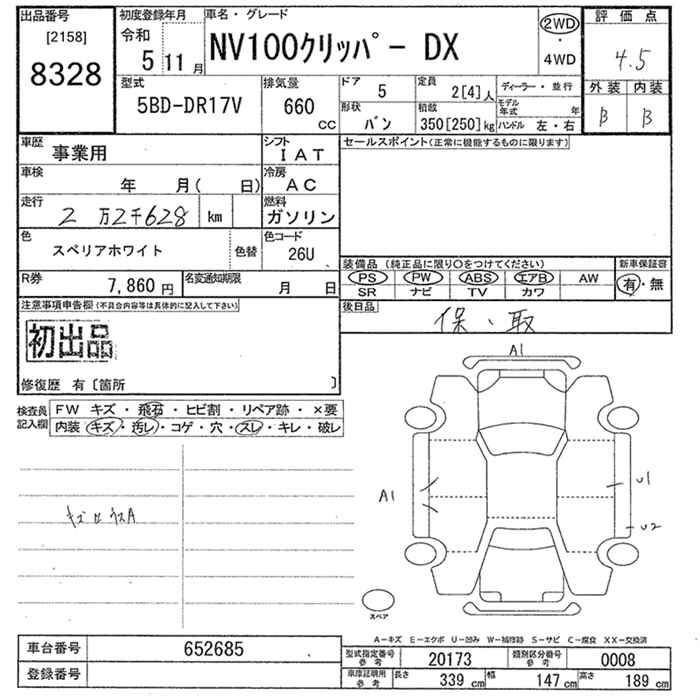 出品番号 [2158] 8328
初度登録年月 令和 5 11 月
車名・グレード NV100クリッパー DX
2WD ・ 4WD
評価点 4.5
外装 内装
B B
型式 5BD-DR17V
排気量 660 CC
ドア 5
形状 バン
定員 2[4]人
積載 350[250]kg
ディーラー・並行
モデル年式 年
ハンドル 左・右
車歴 事業用
シフト IAT
車検 年 月( 日)
冷房 AC
走行 2万2千628 km
燃料 ガソリン
色 スペリアホワイト 色替
色コード 26U
R券 7,860円
名変通知期限 月 日
セールスポイント(正常に機能するものに限ります)
装備品 (純正品に限り○をつけてください)
PS PW ABS エアB AW
SR ナビ TV カワ
新車保証書 有・無
後日品 保・取
注意事項申告欄(不具合内容等は具体的に記入して下さい)
初出品
修復歴 有〔箇所 〕
検査員記入欄
FW キズ・飛石・ヒビ割・リペア跡・×要
内装 キズ・汚レ・コゲ・穴・スレ・キレ・破レ
A1
A1
U1
U2
スペア
A-キズ E-エクボ U-凹み W-補修跡 S-サビ C-腐食 XX-交換済
車台番号 652685
登録番号
型式指定番号 参考 20173
類別区分番号 参考 0008
車庫証明用 参考 長さ 339 cm 幅 147 cm 高さ 189 cm